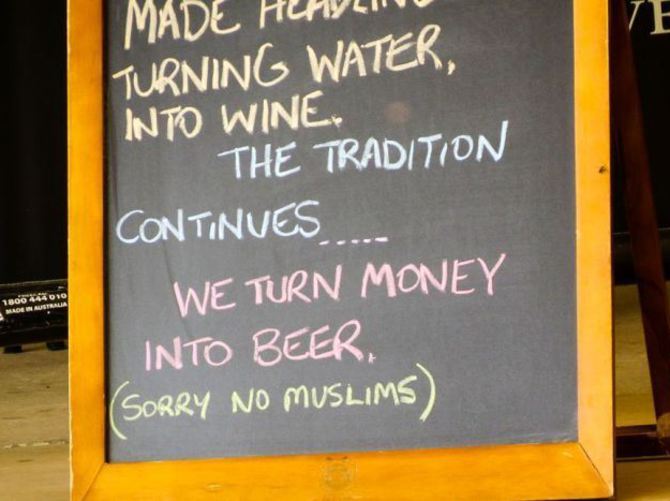 MADE
TURNING WATER,
INTO WINE.
THE TRADITION
CONTINUES.....
WE TURN MONEY
INTO BEER.
(SORRY NO MUSLIMS)
1800 444 010
MADE IN AUSTRALIA